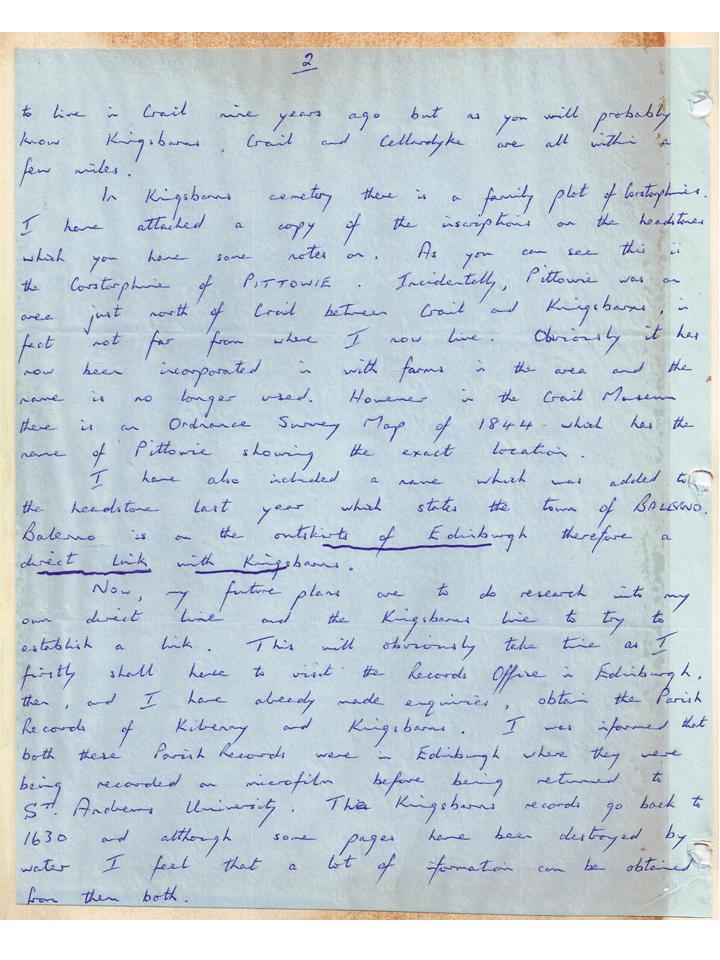 2
to live in Crail nine years ago but as you will probably
know Kingsbarns, Crail and Cellardyke are all within a
few miles.
In Kingsbarns cemetery there is a family plot of Corstorphines.
I have attached a copy of the inscriptions on the headstones
which you have some notes on. As you can see this is
the Corstorphine of PITTOWIE. Incidentally, Pittowie was an
area just north of Crail between Crail and Kingsbarns, in
fact not far from where I now live. Obviously it has
now been incorporated in with farms in the area and the
name is no longer used. However in the Crail Museum
there is an Ordnance Survey Map of 1844 which has the
name of Pittowie showing the exact location.
I have also included a name which was added to
the headstone last year which states the town of BALERNO.
Balerno is on the outskirts of Edinburgh therefore a
direct link with Kingsbarns.
Now, my future plans are to do research into my
own direct line and the Kingsbarns line to try to
establish a link. This will obviously take time as I
firstly shall have to visit the Records Office in Edinburgh,
then, and I have already made enquiries, obtain the Parish
Records of Kilrenny and Kingsbarns. I was informed that
both these Parish Records were in Edinburgh where they were
being recorded on microfilm before being returned to
St. Andrews University. The Kingsbarns records go back to
1630 and although some pages have been destroyed by
water I feel that a lot of information can be obtained
from them both.